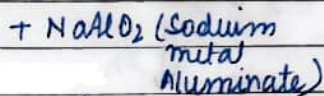 + NaAlO2 (Sodium
metal
Aluminate)